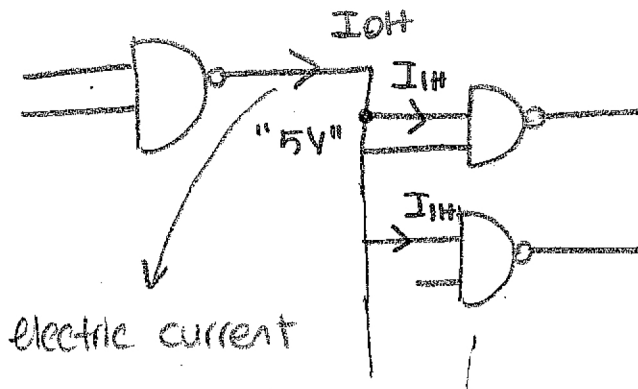 IOH
IIH
"5V"
IIH
electric current